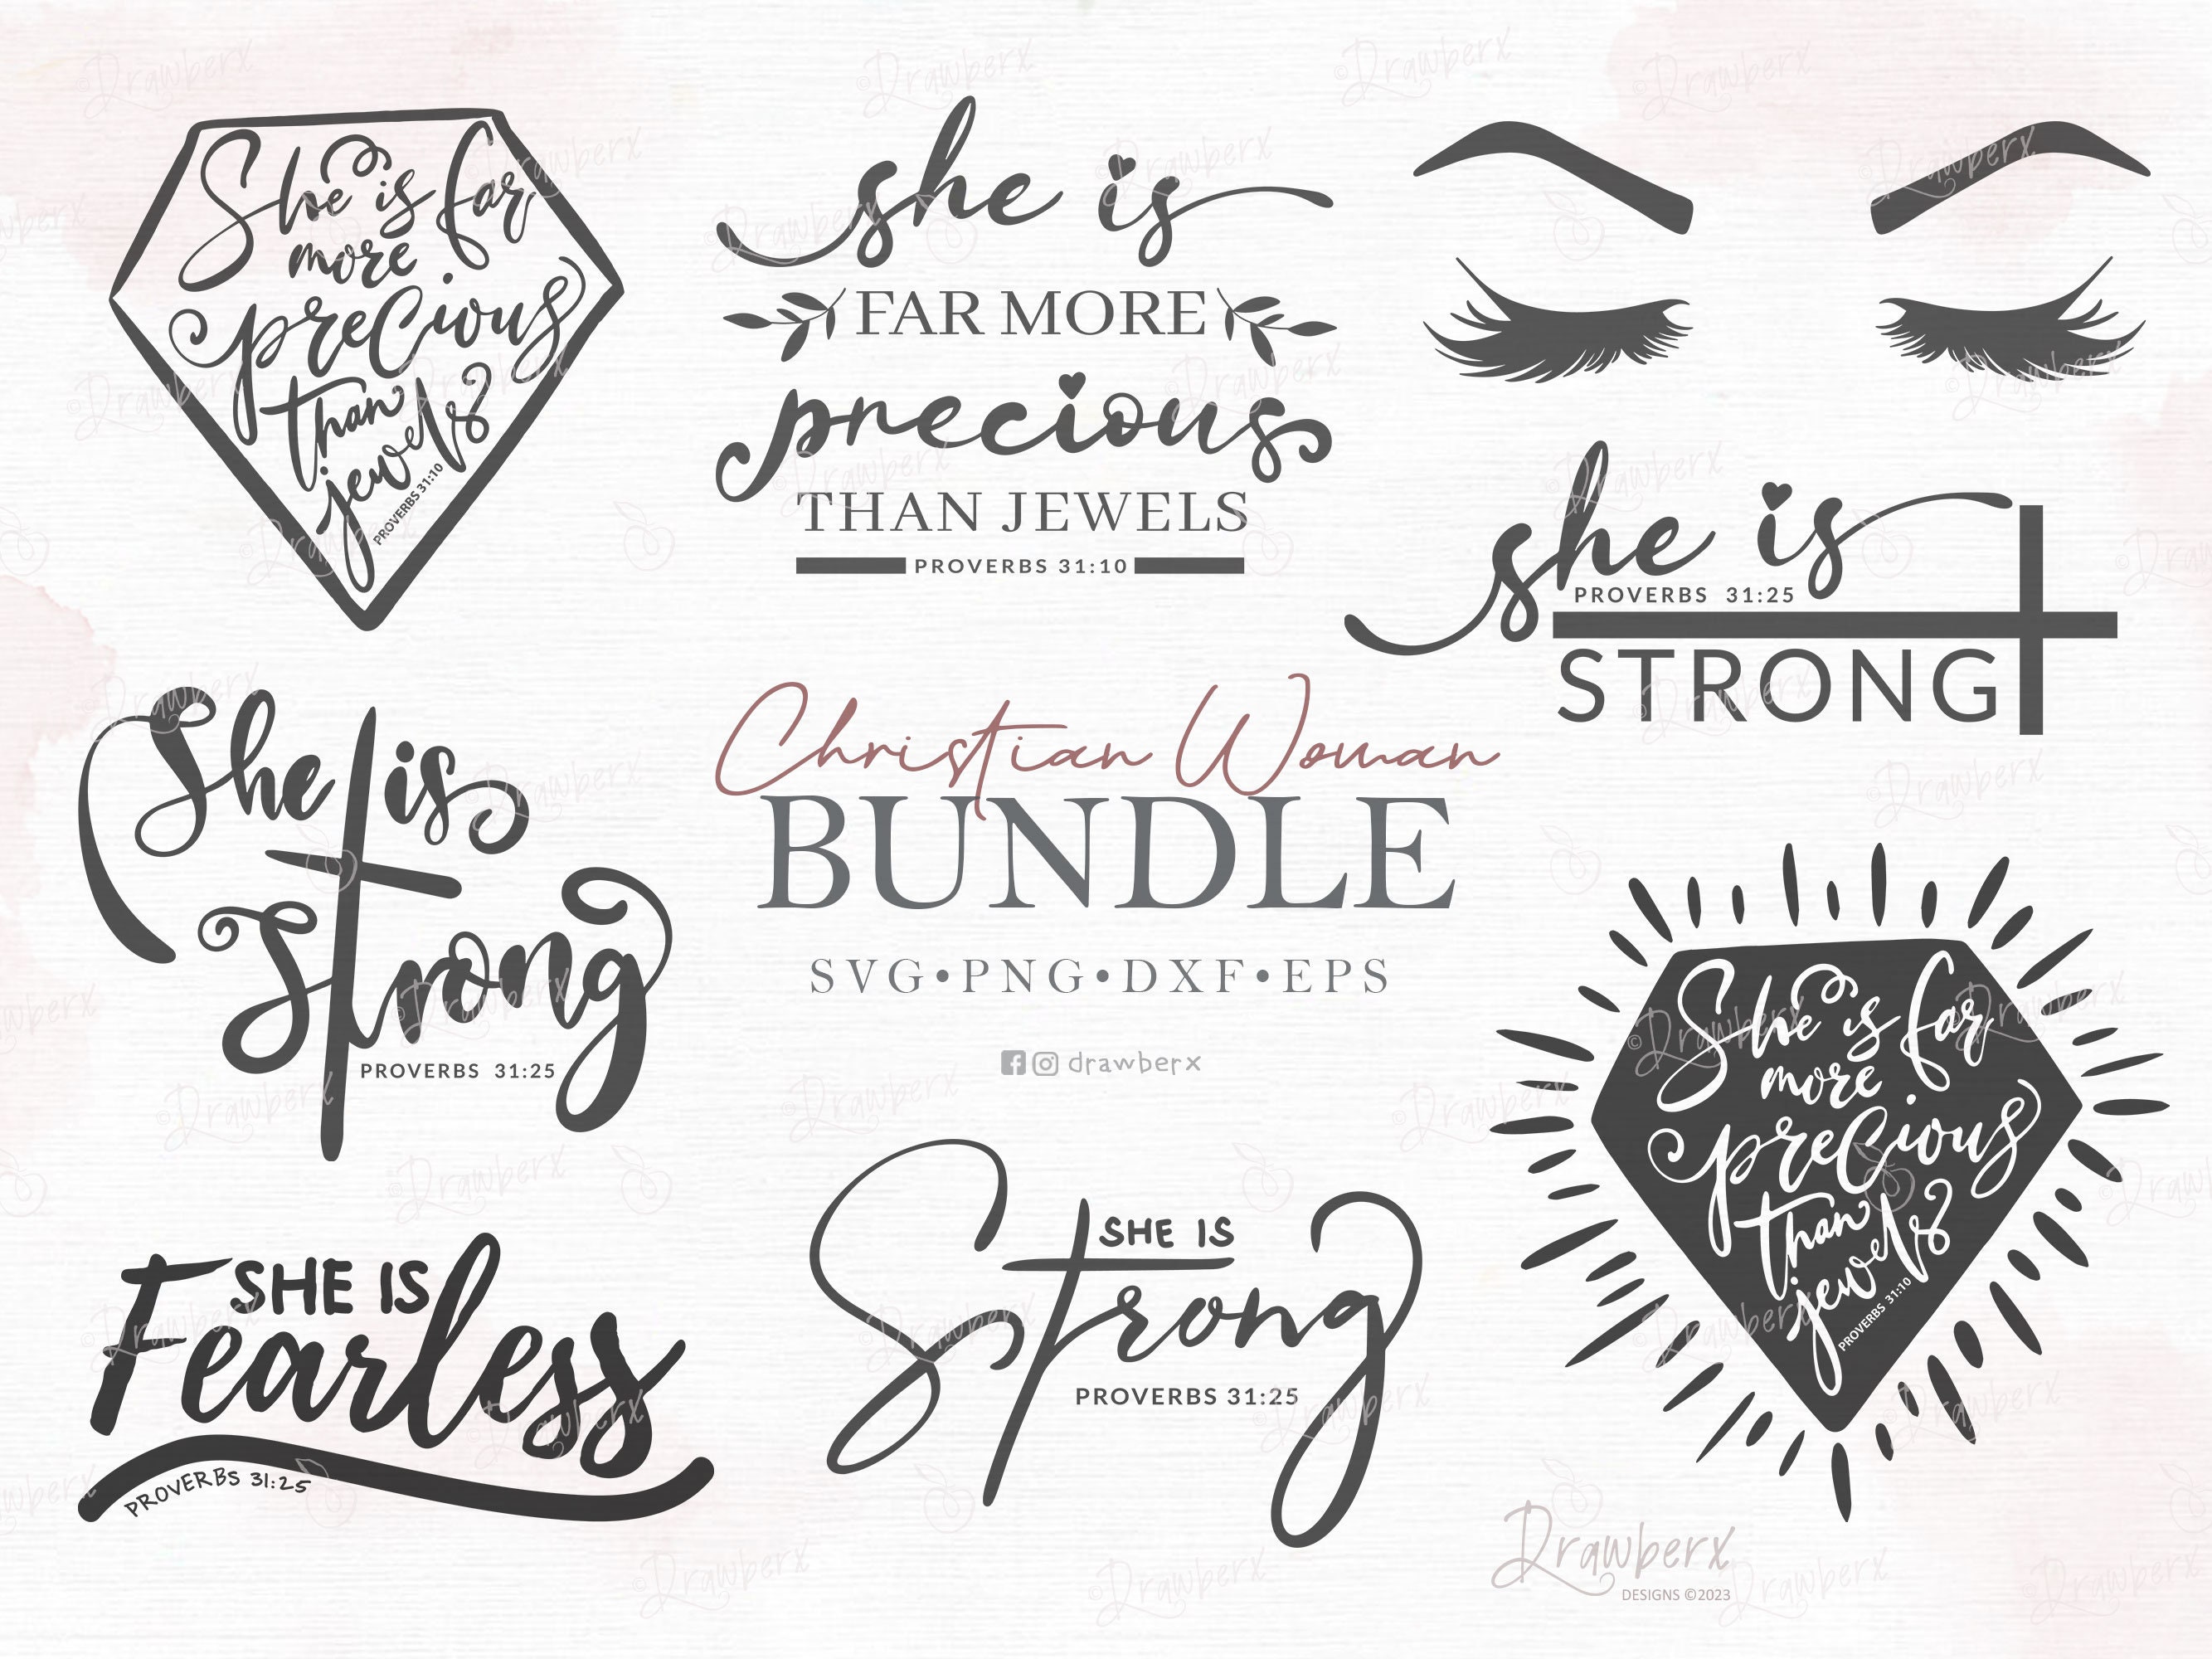 She is far
more
precious
than
jewels
PROVERBS 31:10
she is
FAR MORE
precious
THAN JEWELS
PROVERBS 31:10
she is
PROVERBS 31:25
STRONG
She is
Strong
PROVERBS 31:25
Christian Woman
BUNDLE
SVG•PNG•DXF•EPS
drawberx
She is far
more
precious
than
jewels
PROVERBS 31:10
SHE IS
Fearless
PROVERBS 31:25
SHE IS
Strong
PROVERBS 31:25
Drawberx
DESIGNS ©2023
©Drawberx